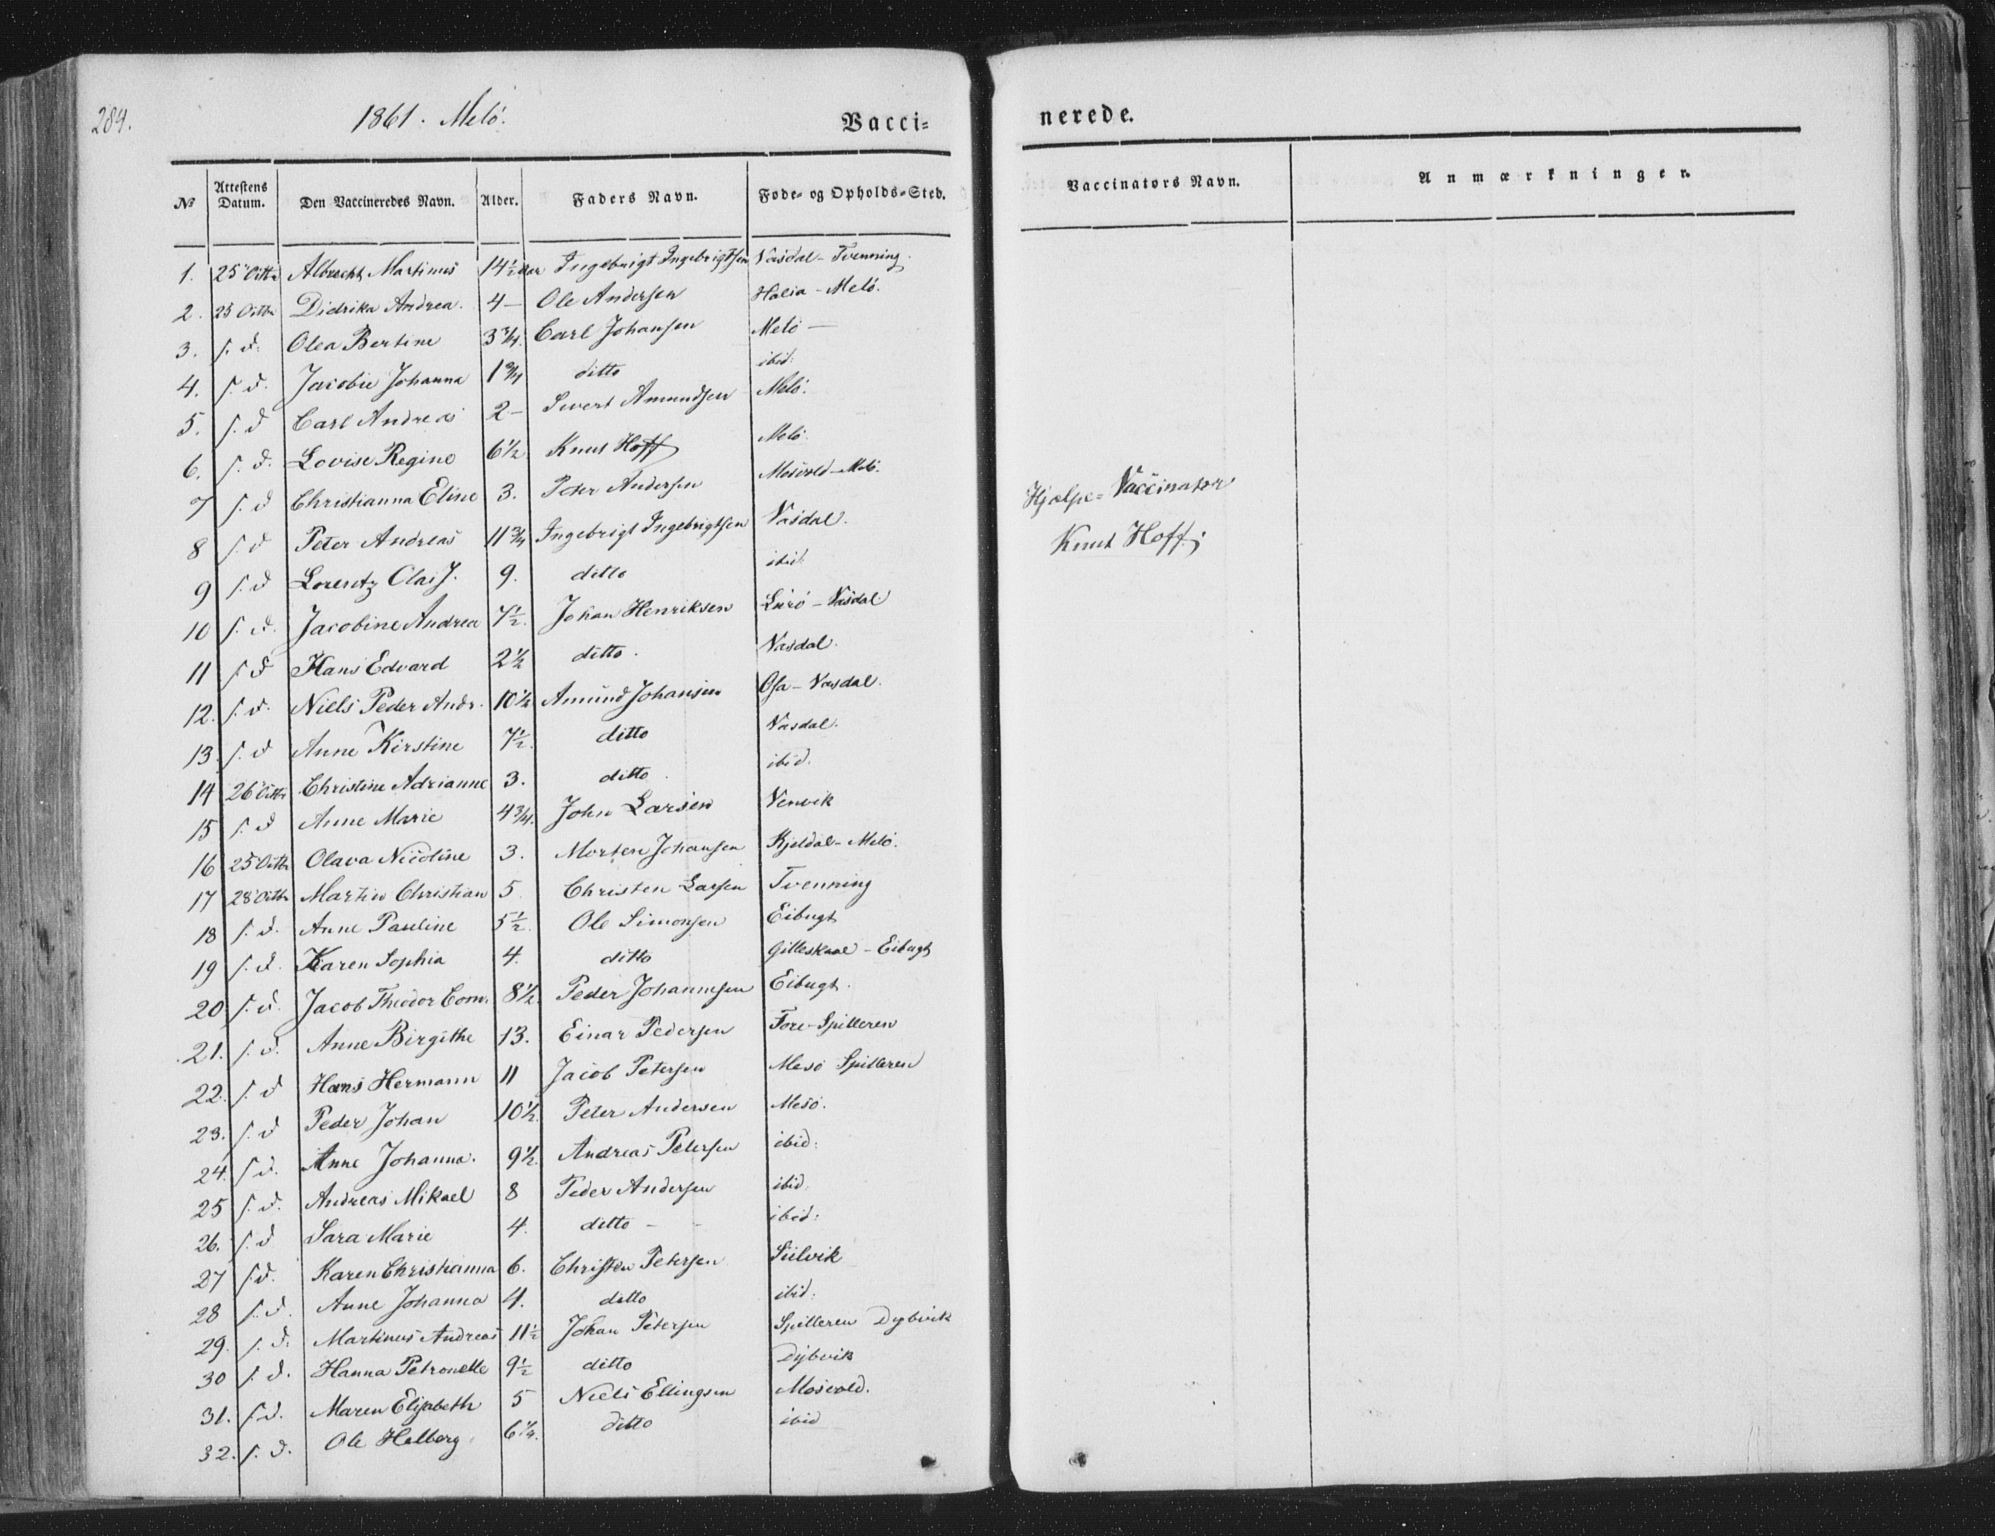 284.
1861. Melö.
Vacci=
nerede.
№ Attestens Datum. Den Vaccineredes Navn. Alder. Faders Navn. Føde- og Opholds-Sted.
Vaccinators Navn. Anmærkninger.
1. 25 Octbr Albrecht Martinus 14½ aar Ingebrigt Ingebrigtsen Vasdal - Tvenning.
2. 25 Octbr Didrika Andrea. 4 — Ole Andersen Halsa - Melö.
3. s. d. Olea Bertine 3¾. Carl Johansen Melö —
4. s. d. Jacobie Johanna 1¾ ditto ibid:
5. s. d Carl Andreas 2 - Sivert Amundsen Melö.
6. s. d. Lovise Regine 6½ Knut Hoff Melö.
7 s. d Christianna Eline 3. Peter Andersen Mosvold - Melö.
8 s. d Peter Andreas 11¾ Ingebrigt Ingebrigtsen Vasdal.
9 s. d Lorentz Clai J. 9. ditto ibid:
10 s. d. Jacobine Andrea 7½. Johan Henriksen Lurö - Vasdal
11 s d Hans Edvard 2½ ditto. Vasdal.
12. s. d. Niels Peder Andr. 10½ Amund Johansen Osa - Vasdal.
13. s. d Anne Kirstine 7½. ditto Vasdal.
14 26 Octbr Christine Adrianne 3. ditto. ibid.
15 s. d Anne Marie 4¾. John Larsen Venvik
16 25 Octbr Olava Nicoline 3. Morten Johansen Kjeldal - Melö.
17 28 Octbr Martin Christian 5. Christen Larsen Tvenning
18 s. d. Anne Pauline 5½. Ole Simonsen Eibugt
19 s. d. Karen Sophia 4. ditto Gilleskaal - Eibugt
20 s. d. Jacob Theodor Corn. 8½. Peder Johannesen Eibugt.
21. s. d. Anne Birgithe 13. Einar Pedersen Fore - Spilleren
22. s. d Hans Hermann 11 Jacob Petersen Mesö Spilleren
23. s. d Peder Johan 10½. Peter Andersen Mesö.
24. s d. Anne Johanna. 9½. Andreas Petersen ibid:
25 s. d. Andreas Mikael 8 Peder Andersen ibid.
26. s. d Sara Marie 4. ditto - - ibid:
27 s. d. Karen Christianna 6. Christen Petersen Sülvik
28 s. d. Anne Johanna 4. ditto ibid:
29. s. d. Martinus Andreas 11½ Johan Petersen Spilleren Dybvik
30 s. d. Hanna Petronelle 9½ ditto Dybvik
31. s. d. Maren Elisabeth 5 Niels Ellingsen Mosvold.
32. s. d. Ole Helberg. 6¼. ditto ibid
Hjælpe=Vaccinator
Knut Hoff.